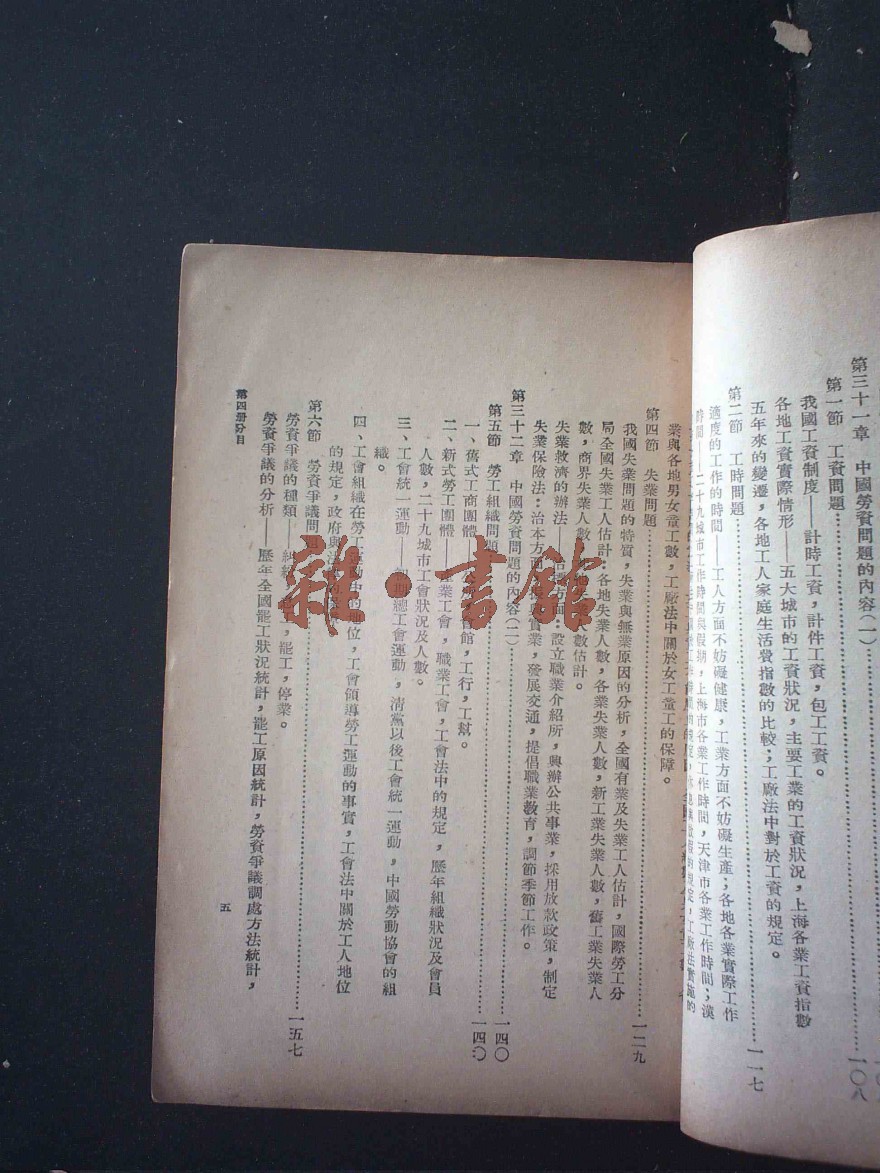 第三十一章 中國勞資問題的內容(一)……一〇八
第一節 工資問題……一〇八
我國工資制度——計時工資,計件工資,包工工資。
各地工資實際情形——五大城市的工資狀況,主要工業的工資狀況,上海各業工資指數
五年來的變遷,各地工人家庭生活費指數的比較;工廠法中對於工資的規定。
第二節 工時問題……一一七
適度的工作的時間——工人方面不妨礙健康,工業方面不妨礙生產;各地各業實際工作
時間——二十九城市工作時間與假期,上海市各業工作時間,天津市各業工作時間;漢
業與各地男女童工數,工廠法中關於女工童工的保障。
第四節 失業問題……一二九
我國失業問題的特質,失業與無業原因的分析,全國有業及失業工人估計,國際勞工分
局全國失業工人估計:各地失業人數,各業失業人數,新工業失業人數,舊工業失業人
數,商界失業人數,各地失業人數估計。
失業救濟的辦法——治標方面:設立職業介紹所,興辦公共事業,採用放款政策,制定
失業保險法:治本方面:振興實業,發展交通,提倡職業教育,調節季節工作。
第三十二章 中國勞資問題的內容(二)……一四〇
第五節 勞工組織問題……一四〇
一、舊式工商團體——公所,會館,工行,工幫。
二、新式勞工團體——產業工會,職業工會,工會法中的規定,歷年組織狀況及會員
人數,二十九城市工會狀況及人數。
三、工會統一運動——初期總工會運動,清黨以後工會統一運動,中國勞動協會的組
織。
四、工會組織在勞工運動中的地位,工會領導勞工運動的事實,工會法中關於工人地位
的規定,政府與法
第六節 勞資爭議問題……一五七
勞資爭議的種類——糾紛,怠工,罷工,停業。
勞資爭議的分析——歷年全國罷工狀況統計,罷工原因統計,勞資爭議調處方法統計,
第四冊分目
五
雜·書館